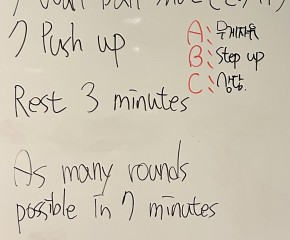 7 Push up
A: 무게자유
B: Step up
C: 상담.
Rest 3 minutes
As many rounds
possible in 7 minutes